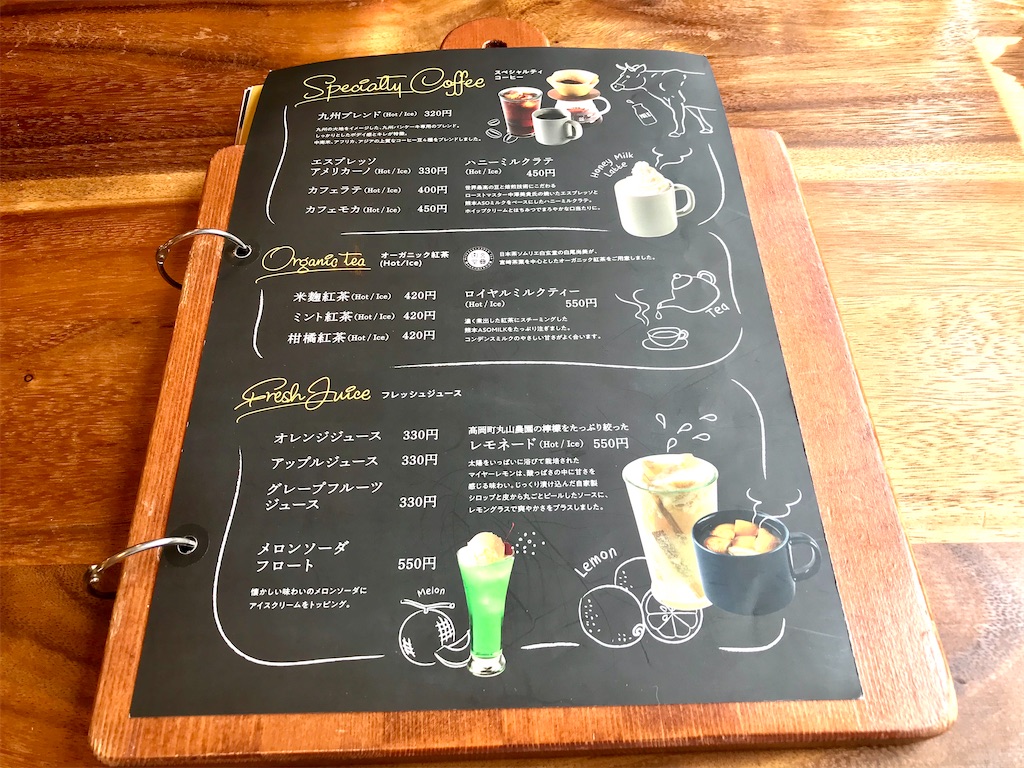 Specialty Coffee
スペシャルティ
コーヒー
九州ブレンド (Hot / Ice) 320円
九州の大地をイメージした、九州パンケーキ専用のブレンド。
しっかりとしたボディ感とキレが特徴。
中南米、アフリカ、アジアの上質なコーヒー豆4種をブレンドしました。
エスプレッソ
アメリカーノ (Hot / Ice) 330円
カフェラテ (Hot / Ice) 400円
カフェモカ (Hot / Ice) 450円
ハニーミルクラテ
(Hot / Ice) 450円
世界最高の豆と焙煎技術にこだわる
ローストマスター中澤美貴氏の焼いたエスプレッソと
熊本ASOミルクをベースにしたハニーミルクラテ。
ホイップクリームとはちみつでまろやかな口当たりに。
MILK
Honey Milk
Latte
Organic tea
オーガニック紅茶
(Hot/Ice)
日本茶ソムリエ白玄堂の白尾尚美が、
宮崎茶葉を中心としたオーガニック紅茶をご用意しました。
米麹紅茶 (Hot / Ice) 420円
ミント紅茶 (Hot / Ice) 420円
柑橘紅茶 (Hot / Ice) 420円
ロイヤルミルクティー
(Hot / Ice) 550円
濃く煮出した紅茶にスチーミングした
熊本ASOMILKをたっぷり注ぎました。
コンデンスミルクのやさしい甘さがよく合います。
Tea
Fresh Juice
フレッシュジュース
オレンジジュース 330円
アップルジュース 330円
グレープフルーツ
ジュース 330円
メロンソーダ
フロート 550円
懐かしい味わいのメロンソーダに
アイスクリームをトッピング。
Melon
高岡町丸山農園の檸檬をたっぷり絞った
レモネード (Hot / Ice) 550円
太陽をいっぱいに浴びて栽培された
マイヤーレモンは、酸っぱさの中に甘さを
感じる味わい。じっくり漬け込んだ自家製
シロップと皮から丸ごとピールしたソースに、
レモングラスで爽やかさをプラスしました。
Lemon